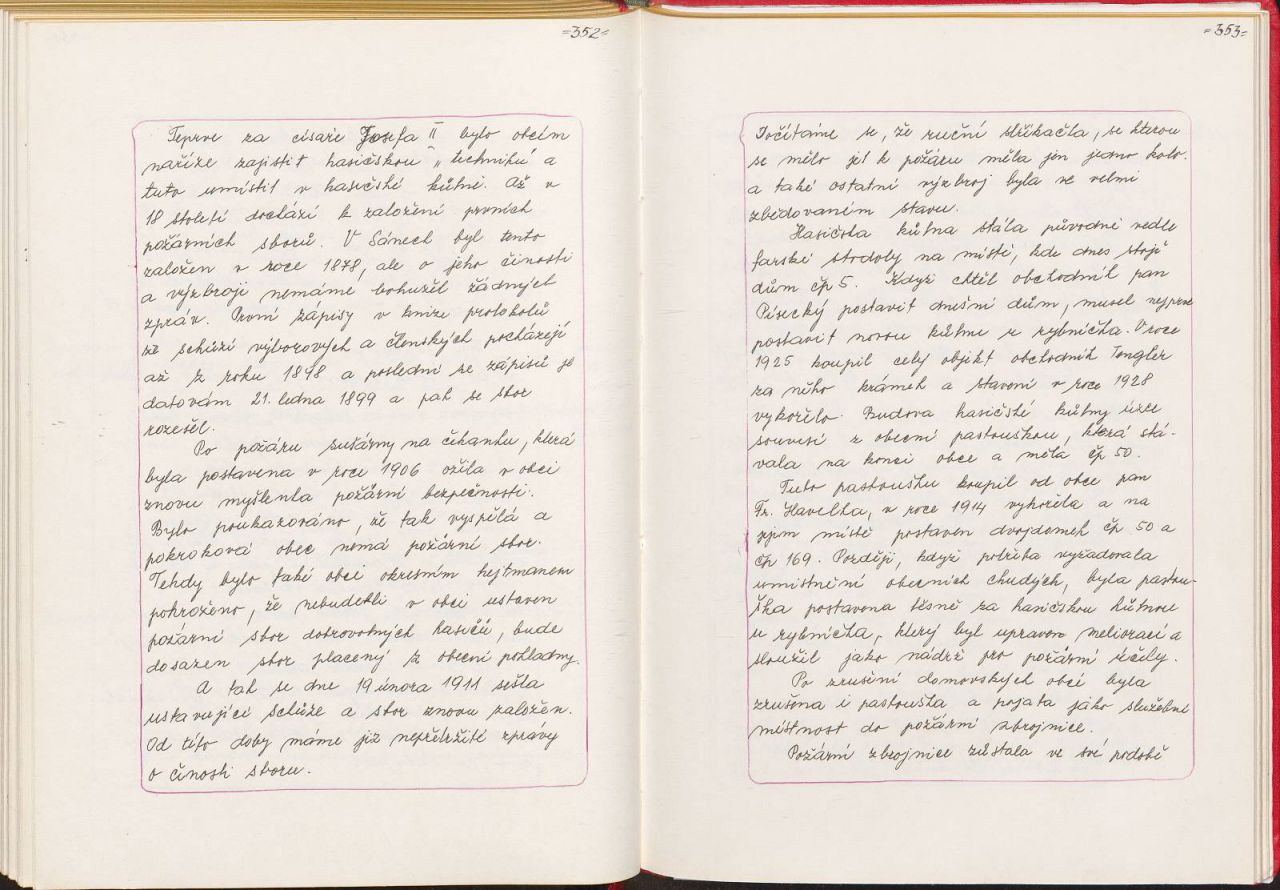 =352=
Teprve za císaře Josefa II bylo obcím
naříze zajistit hasičskou „techniku" a
tuto umístit v hasičské kůlni. Až v
18 století dochází k založení prvních
požárních sborů. V Sánech byl tento
založen v roce 1878, ale o jeho činosti
a výzbroji nemáme bohužel žádných
zpráv. První zápisy v knize protokolů
ze schůzí výborových a členských pocházejí
až z roku 1898 a poslední ze zápisů je
datovám 21. ledna 1899 a pak se sbor
rozešel.
Po požáru sušárny na čekanku, která
byla postavena v roce 1906 ožila v obci
znovu myšlenka požární bezpečnosti.
Bylo poukazováno, že tak vyspělá a
pokroková obec nemá požární sbor.
Tehdy bylo také obci okresním hejtmanem
pohroženo, že nebudekli v obci ustaven
požární sbor dobrovolných hasičů, bude
dosazen sbor placený z obecní pokladny.
A tak se dne 19 února 1911 sešla
ustavující schůze a sbor znovu založen.
Od této doby máme již nepřetržité zprávy
o činosti sboru.
=353=
Dočítáme se, že ruční stříkačka, se kterou
se mělo jet k požáru měla jen jedno kolo.
a také ostatní výzbroj byla ve velmi
zbědovaném stavu.
Hasičska kůlna stála původně vedle
farské stodoly na místě, kde dnes stojí
dům čp 5. Když chtěl obchodník pan
Písecký postavit dnešní dům, musel nejprve
postavit novou kůlnu u rybníčka. V roce
1925 koupil celý objekt obchodník Tengler
za něho krámek a stavení v roce 1928
vyhořelo. Budova hasičské kůlny úzce
souvisí z obecní pastouškou, která stá-
vala na konci obce a měla čp 50.
Tuto pastoušku koupil od obce pan
Fr. Havelka, v roce 1914 vyhořela a na
jejím místě postaven dvojdomek čp 50 a
čp 169. Později, když potřeba vyžadovala
umístnění obecních chudých, byla pastou-
ška postavena těsně za hasičskou kůlnou
u rybníčka, který byl upraven meliorací a
sloužil jako nádrž pro požární účely.
Po zrušení domovských obcí byla
zrušena i pastouška a pojata jako služební
místnost do požární zbrojnice.
Požární zbrojnice zůstala ve své podobě